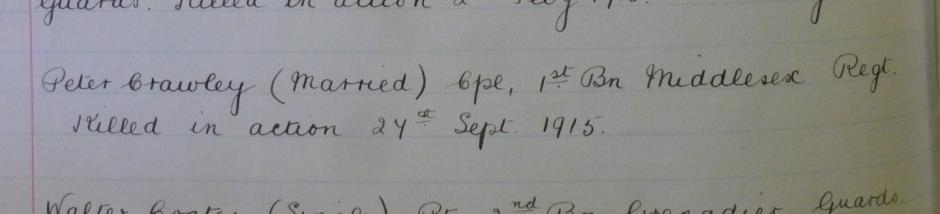 Guards. Killed in action
Peter Crawley (Married) Cpl, 1st Bn Middlesex Regt.
Killed in action 24th Sept. 1915.
Walter (Single) Pt. 2nd Bn Grenadier Guards.